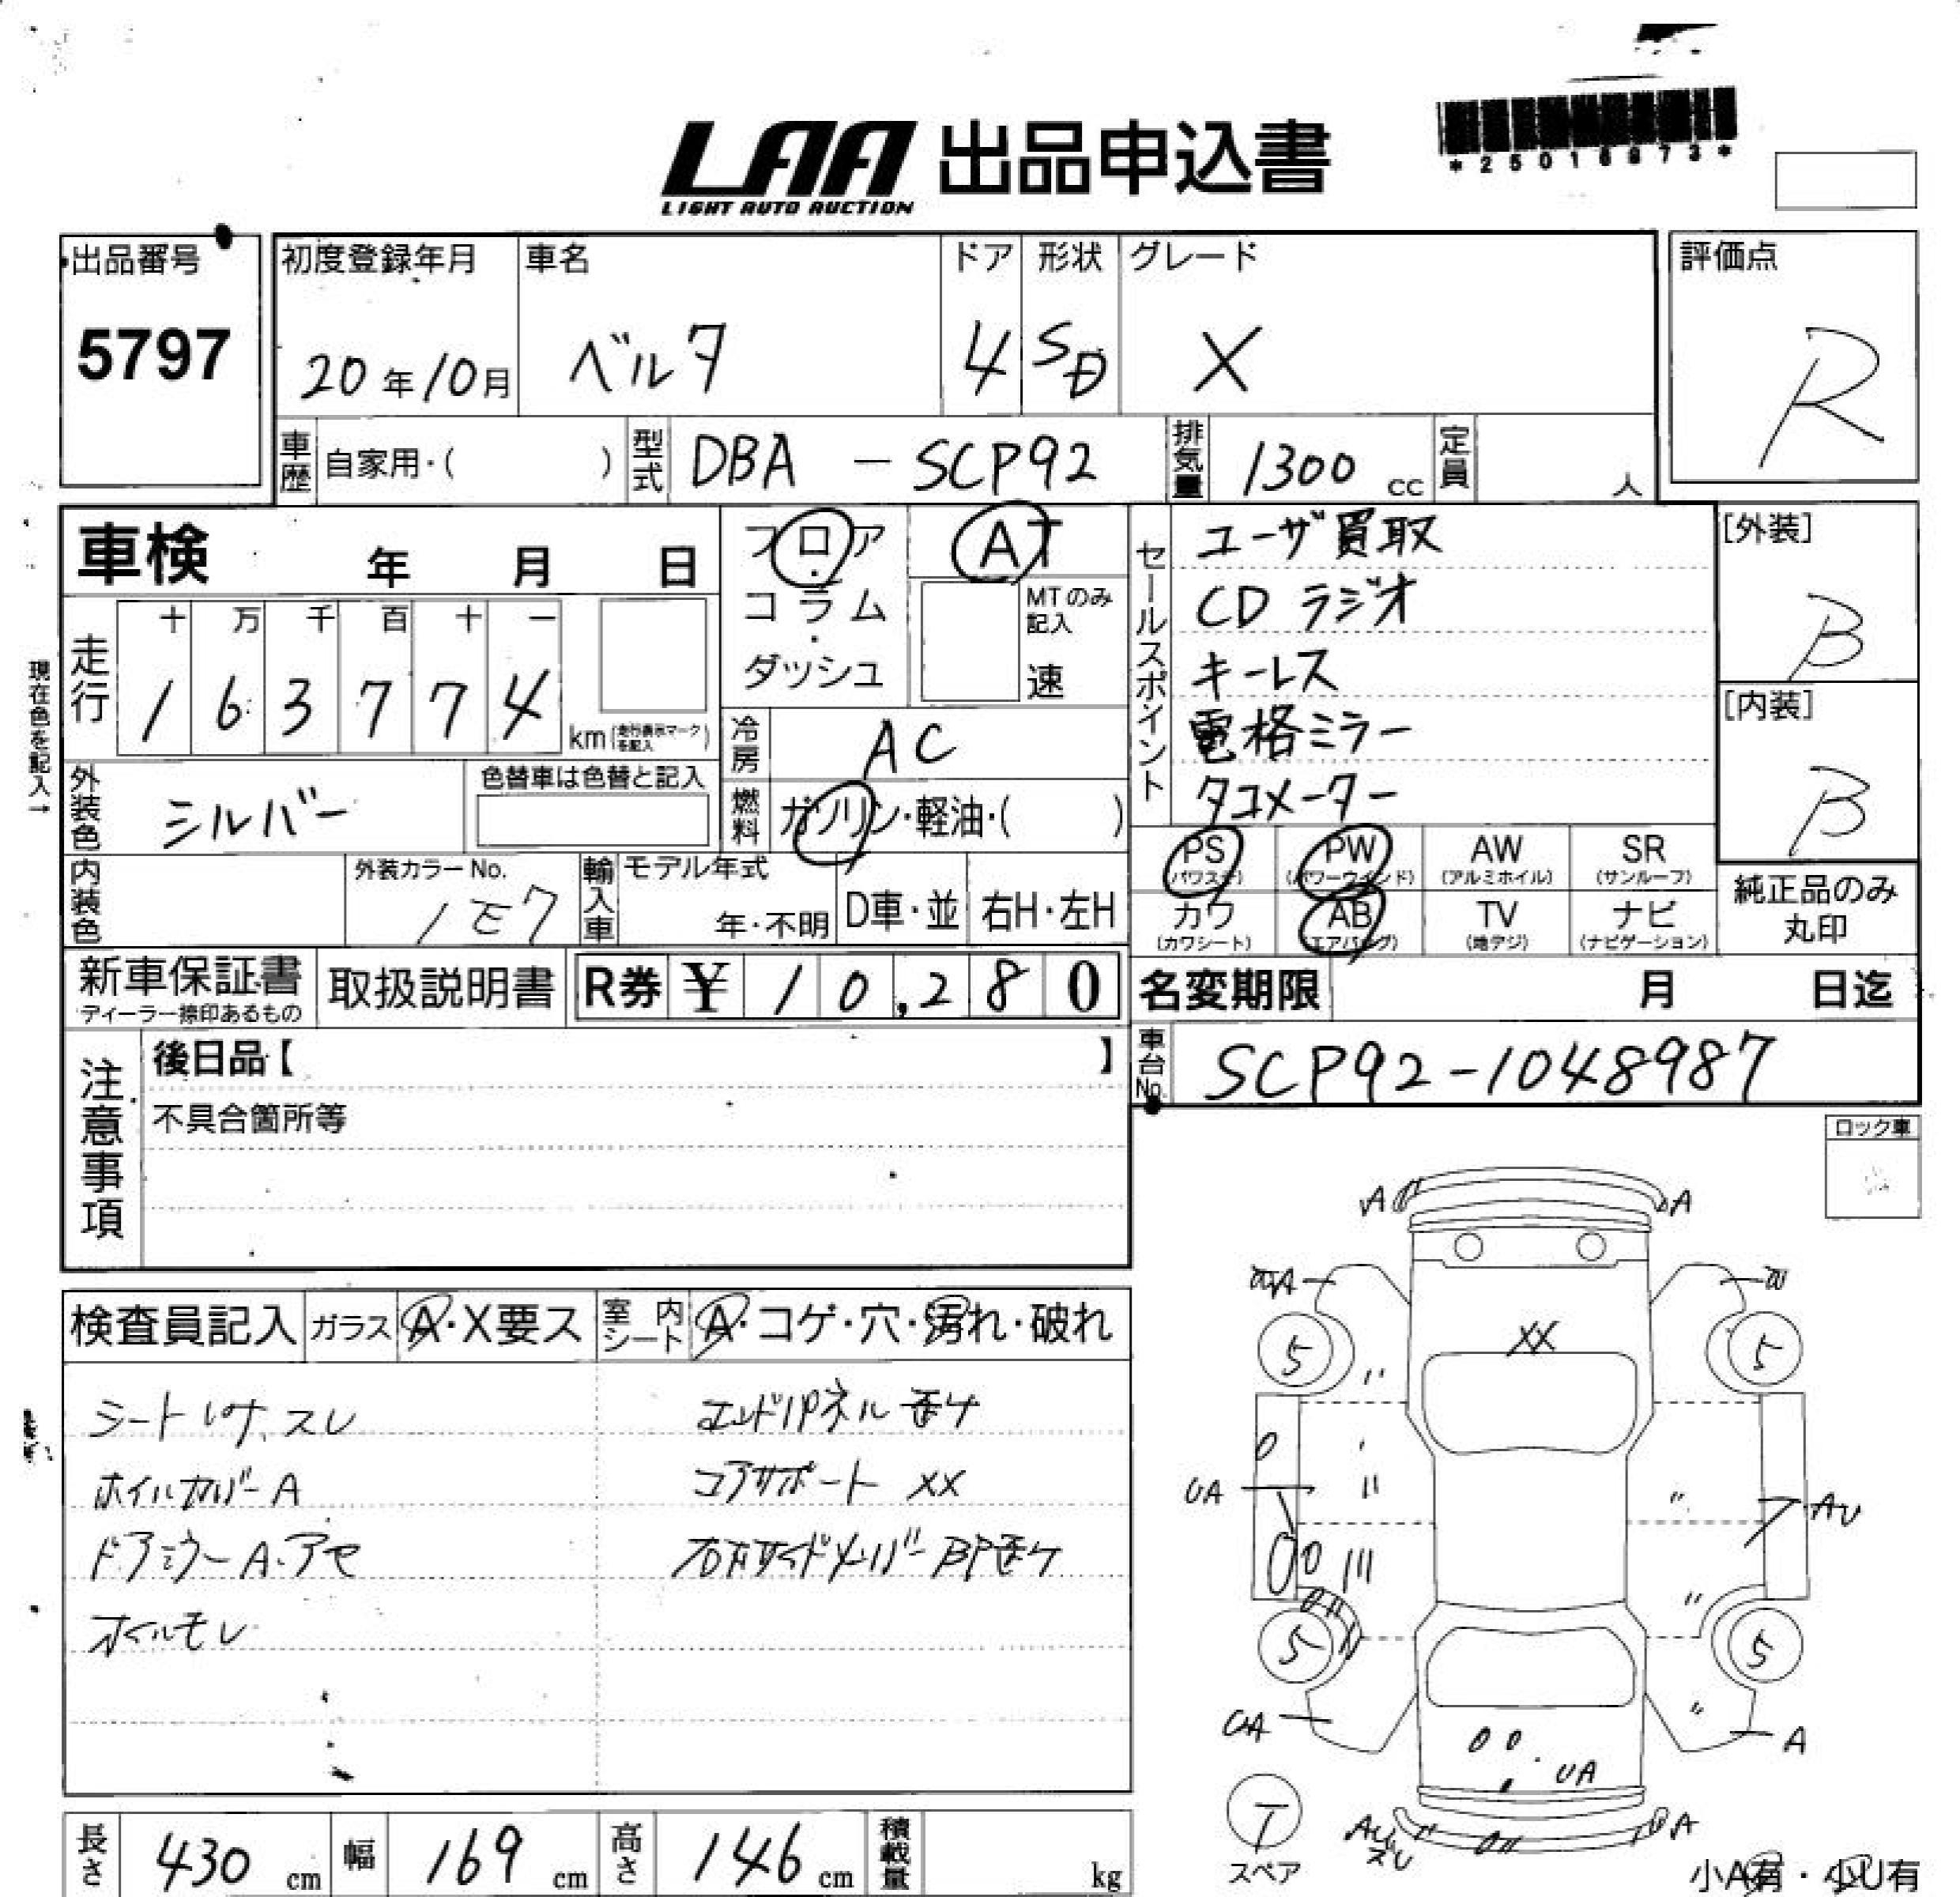 LAA 出品申込書
LIGHT AUTO AUCTION
*25016973*
出品番号
5797
初度登録年月
20年10月
車名
ベルタ
ドア
4
形状
SD
グレード
X
評価点
R
車歴 自家用・( )
型式 DBA - SCP92
排気量 1300 cc
定員 人
車検 年 月 日
フロア・コラム・ダッシュ
AT
MTのみ記入
速
セールスポイント
ユーザ買取
CD ラジオ
キーレス
電格ミラー
タコメーター
[外装]
B
[内装]
B
現在色を記入→
走行
十 万 千 百 十 一
1 6 3 7 7 4
km(走行表示マークを記入)
冷房 AC
燃料 ガソリン・軽油・( )
外装色 シルバー
色替車は色替と記入
内装色
外装カラーNo.
1E7
輸入車
モデル年式
年・不明
D車・並
右H・左H
PS (パワステ)
PW (パワーウインド)
AW (アルミホイル)
SR (サンルーフ)
カワ (カワシート)
AB (エアバッグ)
TV (地デジ)
ナビ (ナビゲーション)
純正品のみ
丸印
新車保証書
ディーラー捺印あるもの
取扱説明書
R券 ¥ 10,280
名変期限 月 日迄
車台No. SCP92-1048987
注意事項
後日品【 】
不具合箇所等
ロック車
検査員記入
ガラス A・X要ス
室内シート A・コゲ・穴・汚れ・破れ
シート スレ
ホイルカバーA
ドアミラーA・アセ
オイルモレ
エンドパネル
コアサポート XX
A A
XX
5 5
UA
AU
5 5
UA
A
UA
T
スペア
AU
A
小A有・小U有
長さ 430 cm
幅 169 cm
高さ 146 cm
積載量 kg